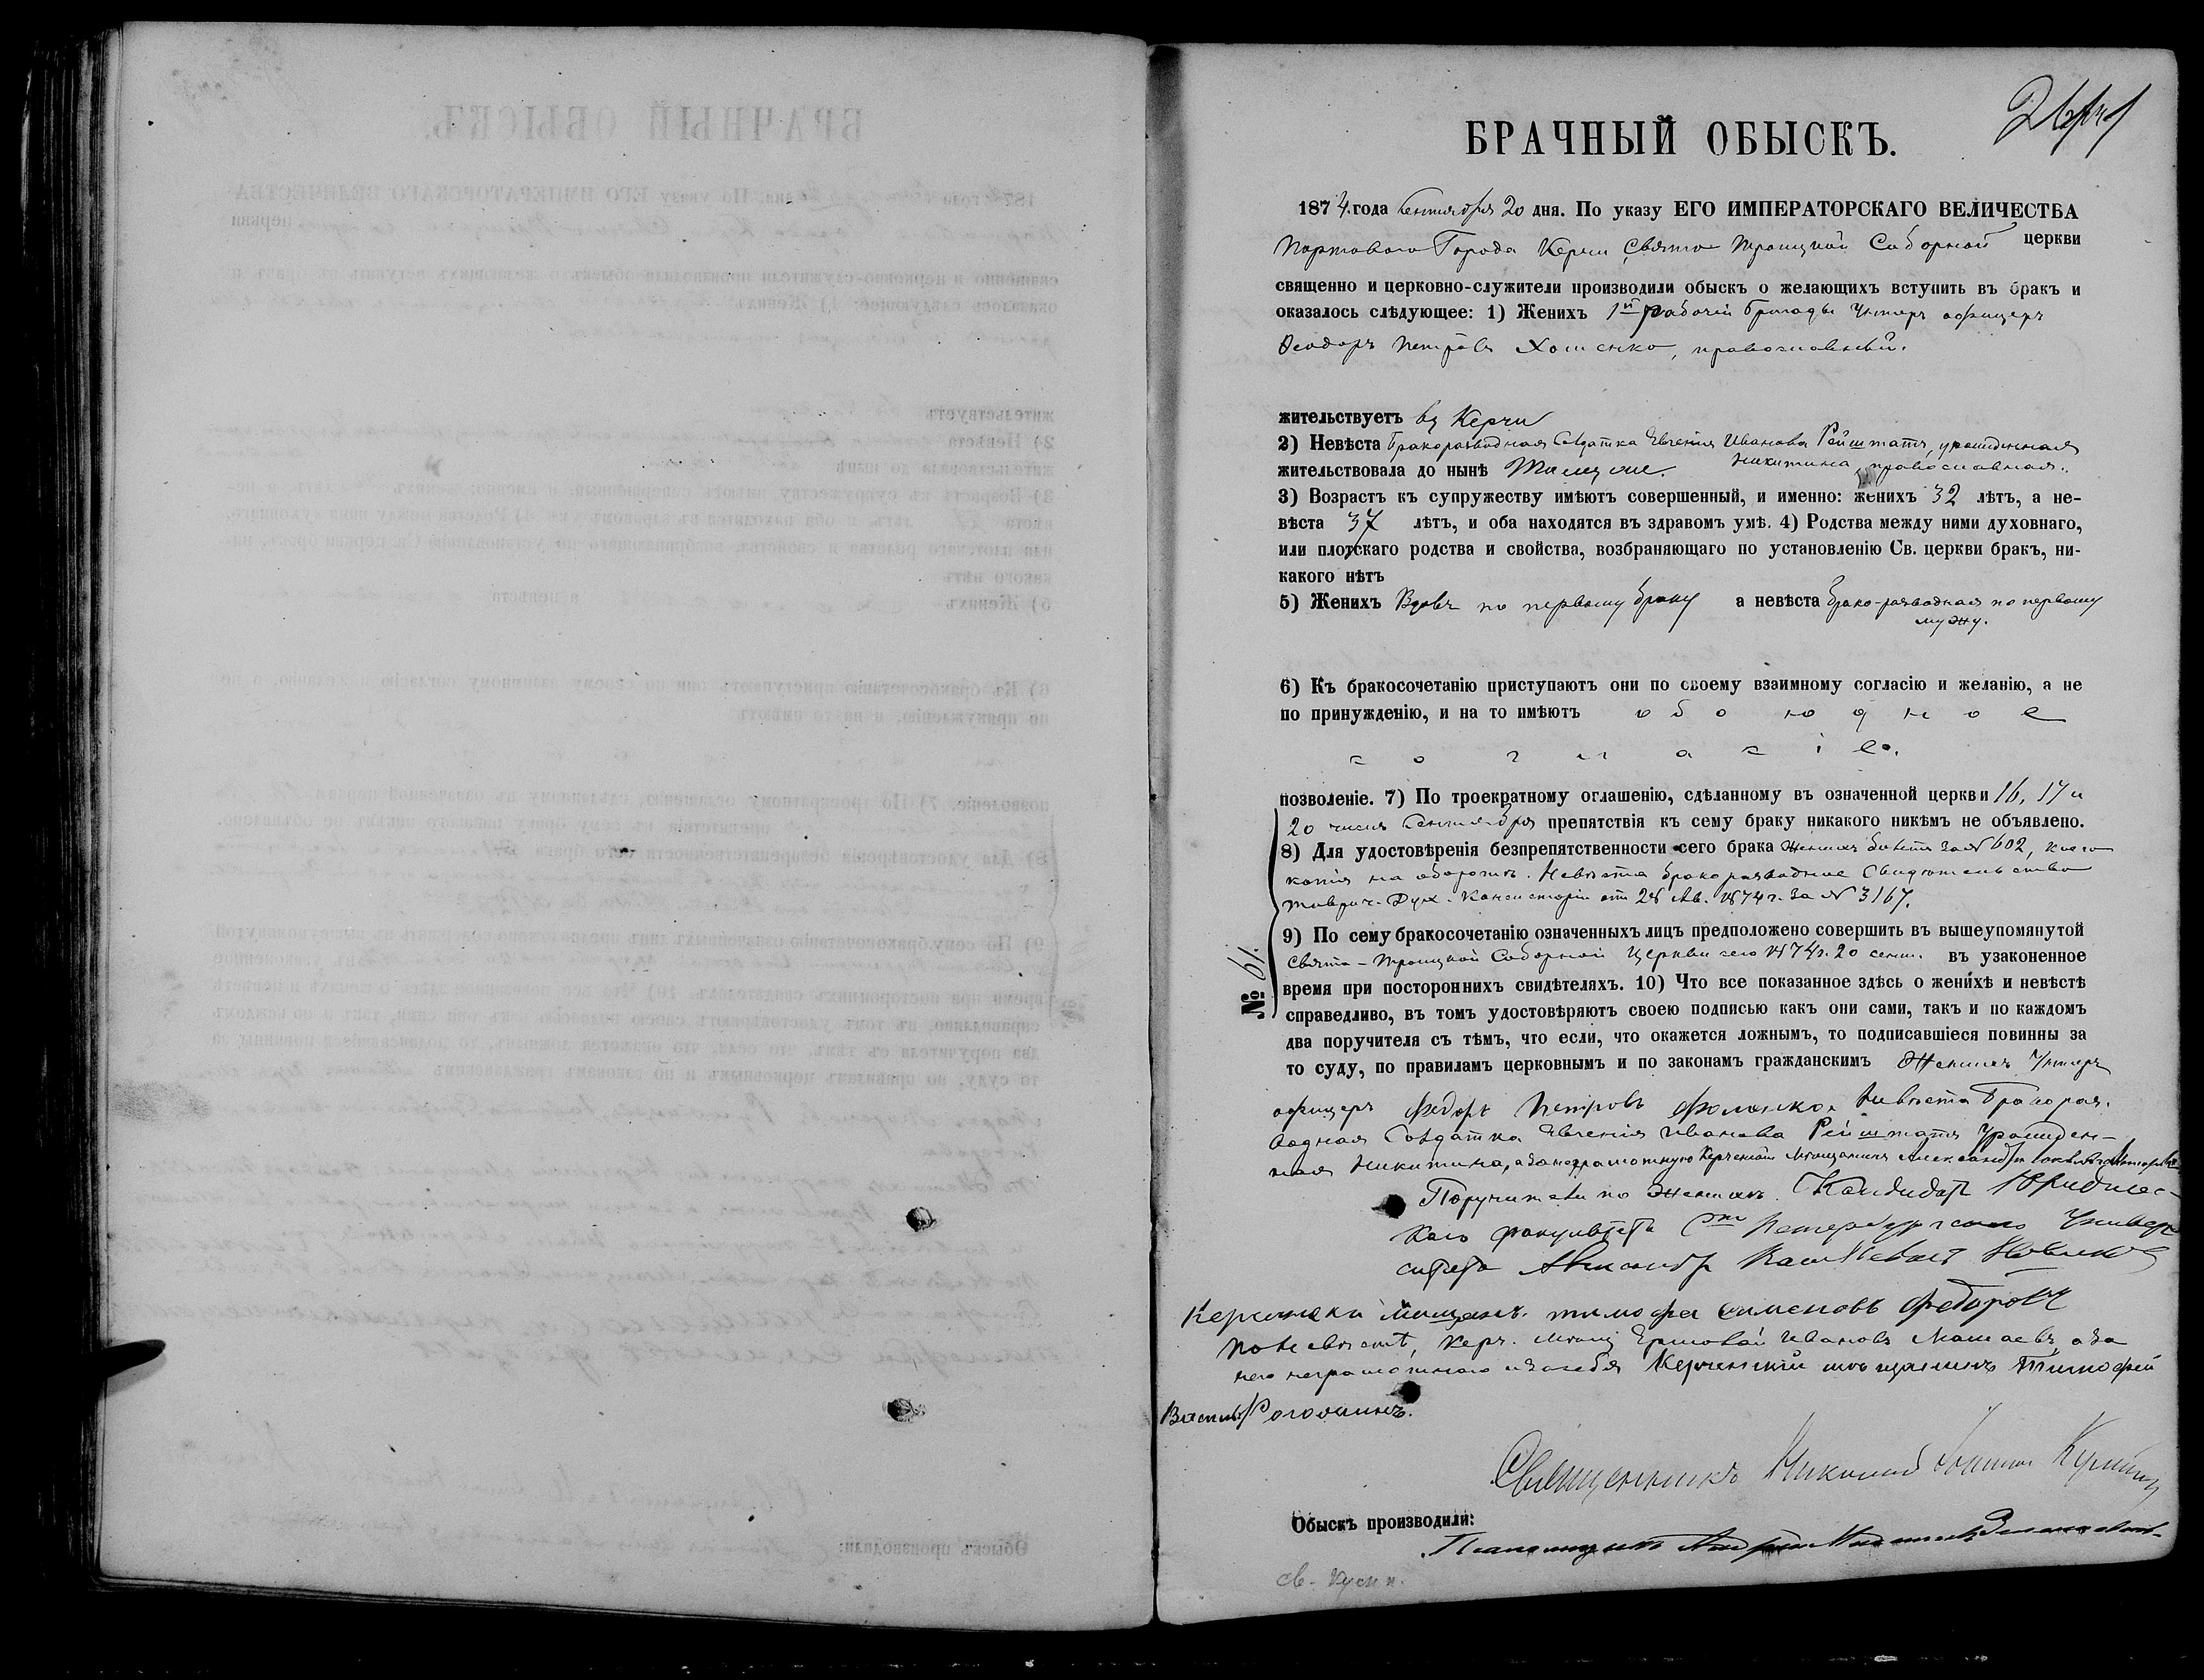 БРАЧНЫЙ ОБЫСКЪ.
1874 года Сентября 20 дня. По указу ЕГО ИМПЕРАТОРСКАГО ВЕЛИЧЕСТВА
Портоваго Города Керчи Свято Троицкой Соборной церкви
священно и церковно-служители производили обыскъ о желающихъ вступить въ бракъ и
оказалось слѣдующее: 1) Женихъ 1й рабочей бригады Унтеръ офицеръ
Ѳеодоръ Петровъ Хоменко, православный.
жительствуетъ въ Керчи
2) Невѣста бракоразводная Солдатка Евгенія Иванова Рейштатъ, урожденная
Никитина, православная.
жительствовала до нынѣ
3) Возрастъ къ супружеству имѣютъ совершенный, и именно: женихъ 32 лѣтъ, а не-
вѣста 37 лѣтъ, и оба находятся въ здравомъ умѣ. 4) Родства между ними духовнаго,
или плотскаго родства и свойства, возбраняющаго по установленію Св. церкви бракъ, ни-
какого нѣтъ
5) Женихъ Вдовъ по первому браку а невѣста брако-разводная по первому
мужу.
6) Къ бракосочетанію приступаютъ они по своему взаимному согласію и желанію, а не
по принужденію, и на то имѣютъ обоюдное
согласіе.
позволеніе. 7) По троекратному оглашенію, сдѣланному въ означенной церкви 16, 17 и
20 числа Сентября препятствія къ сему браку никакого никѣмъ не объявлено.
8) Для удостовѣренія безпрепятственности сего брака Женихъ билетъ за № 602, коего
копія на оборотѣ. Невѣста бракоразводное Свидѣтельство
Таврич. Дух. Консисторіи отъ 28 Ав. 1874 г. за № 3167.
9) По сему бракосочетанію означенныхъ лицъ предположено совершить въ вышеупомянутой
Свято-Троицкой Соборной Церкви сего 1874 г. 20 сент. въ узаконенное
№ 61.
время при постороннихъ свидѣтеляхъ. 10) Что все показанное здѣсь о женихѣ и невѣстѣ
справедливо, въ томъ удостовѣряютъ своею подписью какъ они сами, такъ и по каждомъ
два поручителя съ тѣмъ, что если, что окажется ложнымъ, то подписавшіеся повинны за
то суду, по правиламъ церковнымъ и по законамъ гражданскимъ Женихъ Унтеръ
офицеръ Федоръ Петровъ Фоменко. Невѣста Бракораз-
водная Солдатка Евгенія Иванова Рейштатъ Урожден-
ная Никитина, а за неграмотную Керченскій Мѣщанинъ Александръ
Поручители по Женихѣ. Кандидатъ Юридичес-
каго факультета Петербургскаго Универ-
ситета Александръ Новиковъ
Керченски мищанъ тимофеи семеновъ Федоровъ
По невѣстѣ, Керч. мѣщ. Иванов а за
него неграмотнаго и за себя Керченскій мѣщанинъ Тимофей
Васильевъ
Священникъ Николай
Обыскъ производили: